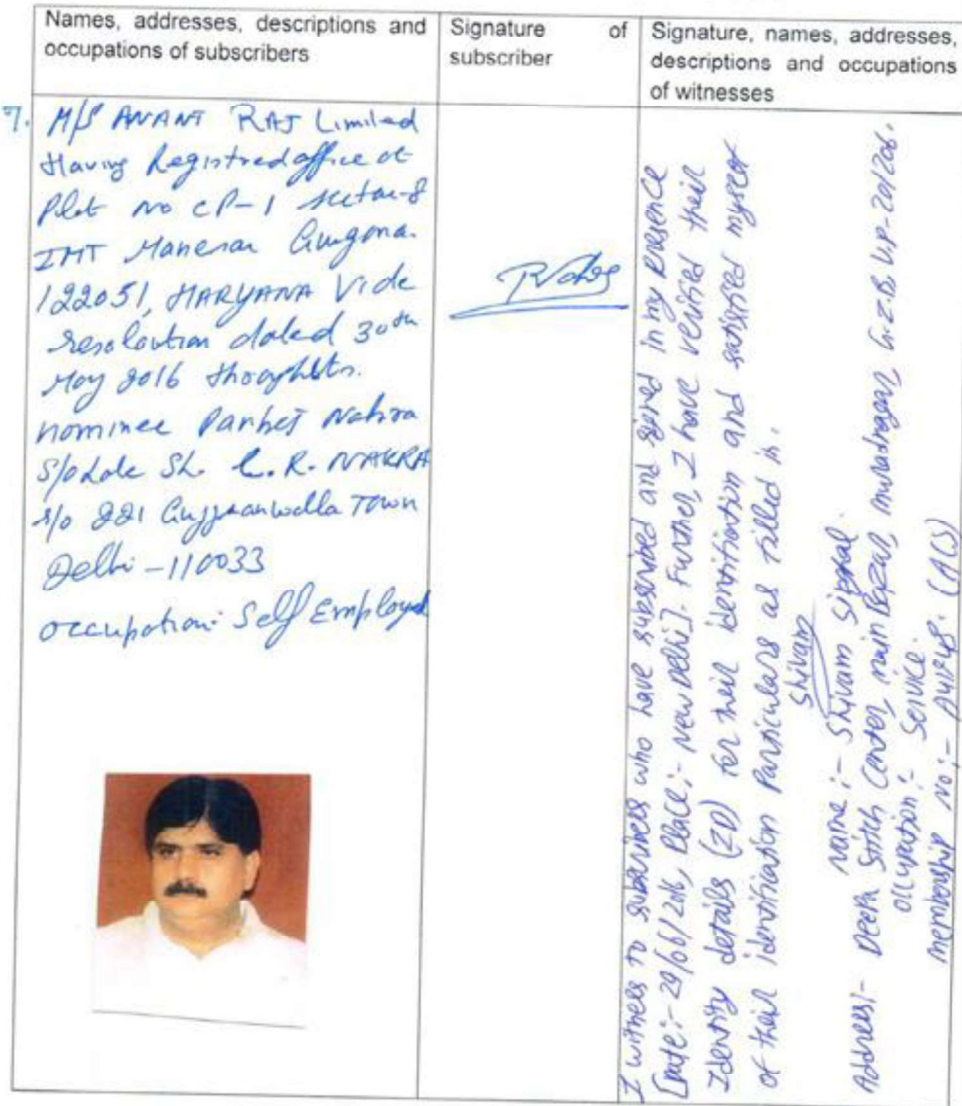 Names, addresses, descriptions and
occupations of subscribers
Signature of
subscriber
Signature, names, addresses,
descriptions and occupations
of witnesses
7. M/S ANANT RAJ Limited
Having Registred office at
Plot no CP-1 Sector-8
IMT Manesar Gurgona.
122051, HARYANA Vide
resolution dated 30th
May 2016
nominee Pankaj Nakra
S/o Late Sh. C. R. NAKRA
r/o 221 Gujjranwalla Town
Delhi - 110033
occupation: Self Employed
I witness to subscribers who have subscribed and signed in my presence
[Date:- 29/06/2016, Place:- New Delhi]. Further, I have verified their
Identity details (ID) for their identification and satisfied myself
of their identification Particulars as filled in.
Shivam
Name:- Shivam Sippal
Address:- Deepa Stitch Center, main Bazar, muradnagar, G.Z.B. U.P-201206.
occupation:- Service.
membership No:- (ACS)